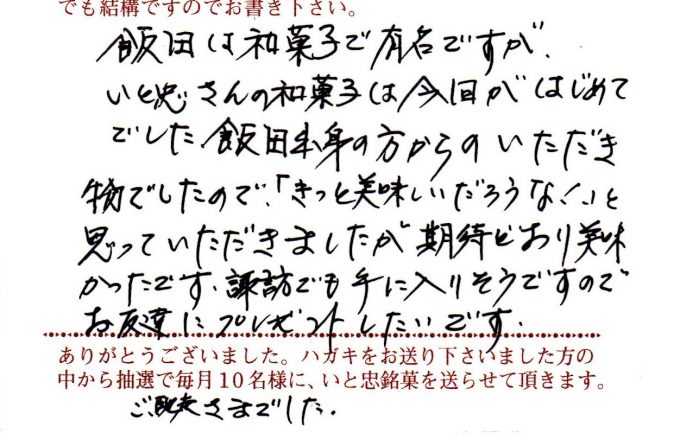 でも結構ですのでお書き下さい。
飯田は和菓子で有名ですが、
いと忠さんの和菓子は今回がはじめて
でした 飯田出身の方からのいただき
物でしたので、「きっと美味しいだろうな!」と
思っていただきましたが期待どおり美味
かったです。諏訪でも手に入りそうですので
お友達にプレゼントしたいです。
ありがとうございました。ハガキをお送り下さいました方の
中から抽選で毎月10名様に、いと忠銘菓を送らせて頂きます。
ご馳走さまでした。